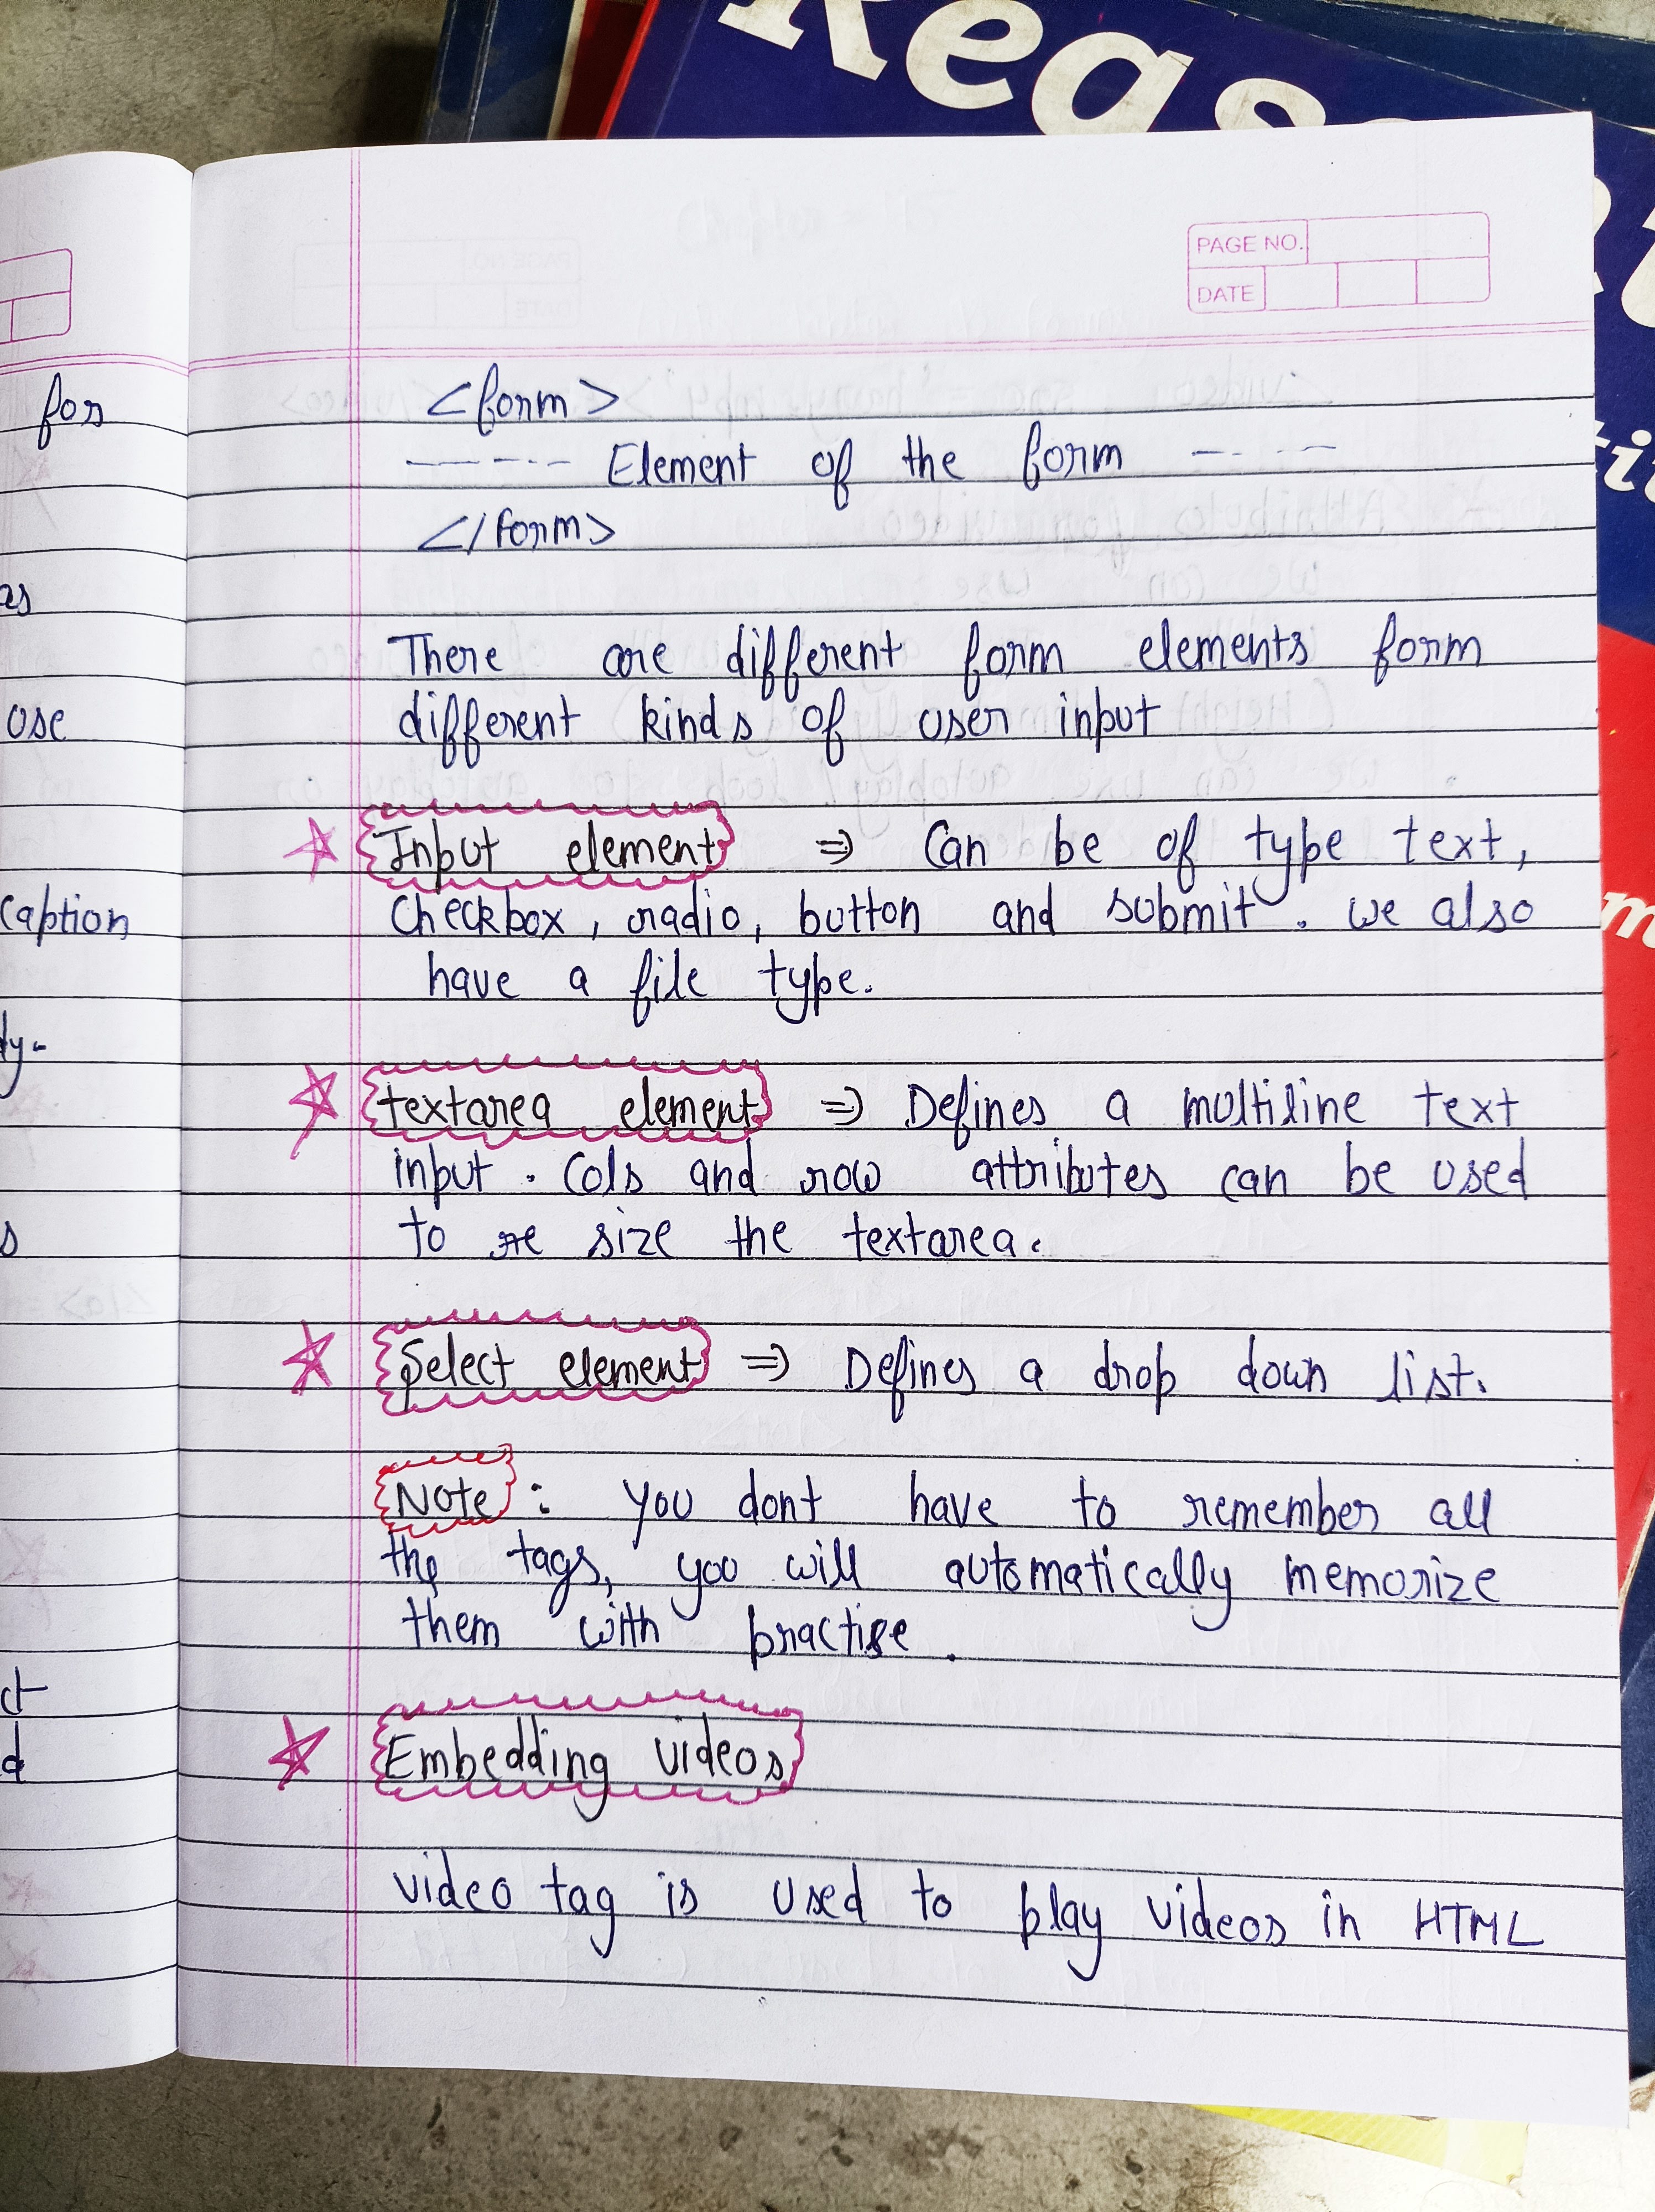 Reas
PAGE NO.
DATE
for
<form>
------ Element of the form -----
</form>
as
There are different form elements form
use
different kinds of user input
Input element ⇒ Can be of type text,
caption
checkbox, radio, button and submit. we also
have a file type.
ly.
textarea element ⇒ Defines a multiline text
input. Cols and row attributes can be used
s
to re size the textarea.
Select element ⇒ Defines a drop down list.
Note : you dont have to remember all
the tags, you will automatically memorize
them with practise.
ct
d
Embedding videos
video tag is used to play videos in HTML